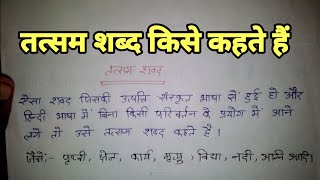 तत्सम शब्द किसे कहते हैं
तत्सम शब्द
ऐसा शब्द जिसकी उत्पति संस्कृत भाषा से हुई हो और
हिन्दी भाषा में बिना किसी परिवर्तन के प्रयोग में आने
लगे तो उसे तत्सम शब्द कहते है ।
जैसे:- पृथ्वी, क्षेत्र, कार्य, मृत्यु, विद्या, नदी, अग्नि आदि।